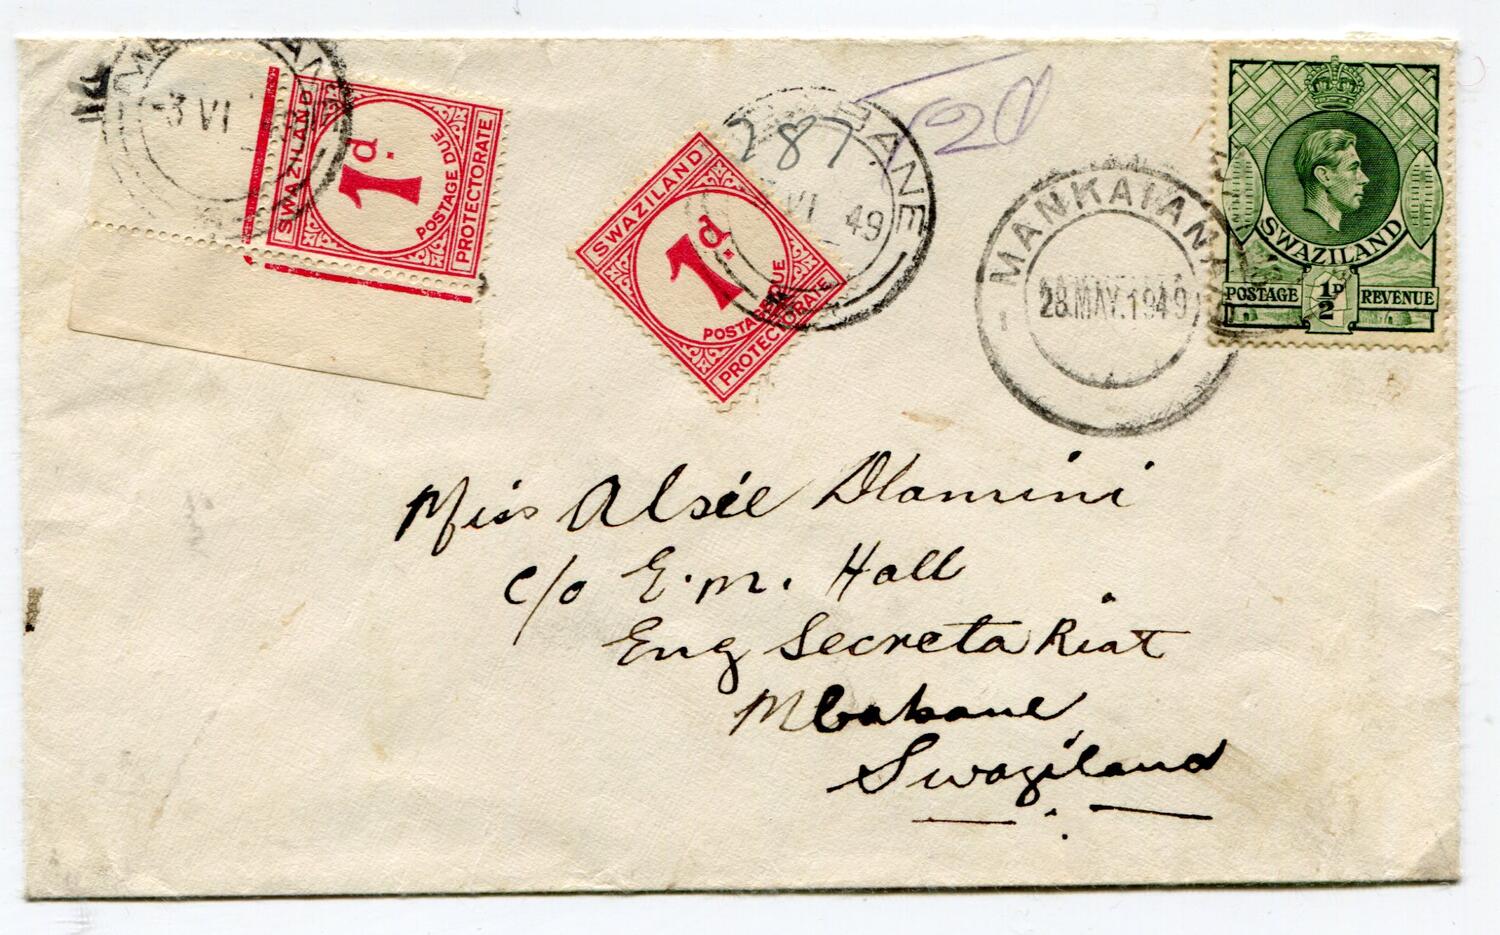 -3 VI
SWAZILAND
1d.
POSTAGE DUE
PROTECTORATE
SWAZILAND
1d.
POSTAGE DUE
PROTECTORATE
287
BANE
VI 49
20
MANKAIANA
28.MAY.1949
SWAZILAND
POSTAGE 1/2D REVENUE
Miss Alsie Dlamini
c/o E.M. Hall
Eng SecretaRiat
Mbabane
Swaziland